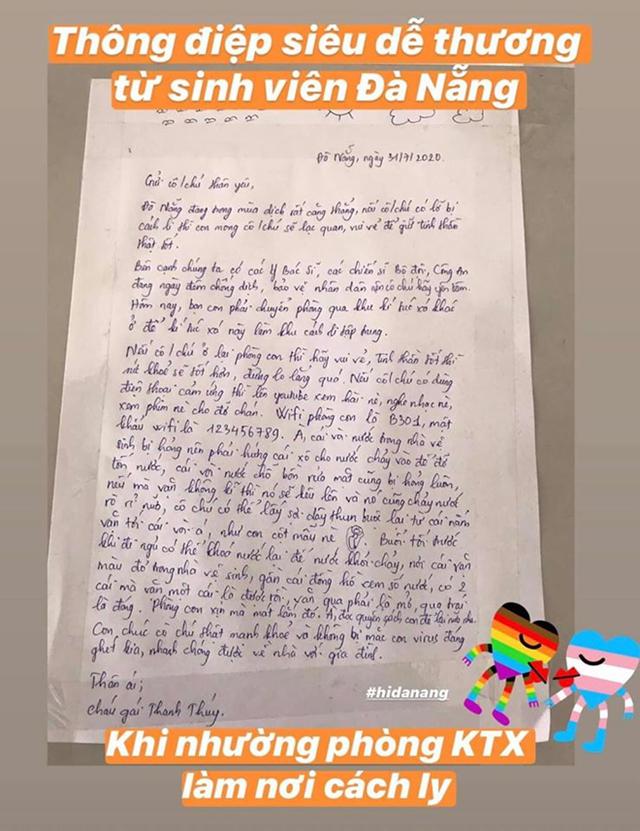 Thông điệp siêu dễ thương
từ sinh viên Đà Nẵng
Đà Nẵng, ngày 31/7/2020.
Gửi cô/chú thân yêu,
Đà Nẵng đang trong mùa dịch rất căng thẳng, nếu cô/chú có lỡ bị
cách li thì con mong cô/chú sẽ lạc quan, vui vẻ để giữ tinh thần
thật tốt.
Bên cạnh chúng ta có các Y Bác Sĩ, các chiến sĩ Bộ đội, Công An
đang ngày đêm chống dịch, bảo vệ nhân dân nên cô chú hãy yên tâm.
Hôm nay, bọn con phải chuyển phòng qua khu kí túc xá khác
ở để kí túc xá này làm khu cách li tập trung.
Nếu cô/chú ở lại phòng con thì hãy vui vẻ, tinh thần tốt thì
sức khoẻ sẽ tốt hơn, đừng lo lắng quá. Nếu cô/chú có dùng
điện thoại cảm ứng thì lên youtube xem hài nè, nghe nhạc nè,
xem phim nè cho đỡ chán. Wifi phòng con là B301, mật
khẩu wifi là 123456789. À, cái vòi nước trong nhà vệ
sinh bị hỏng nên phải hứng cái xô cho nước chảy vào đó để đỡ
tốn nước, cái vòi nước chỗ bồn rửa mặt cũng bị hỏng luôn,
nếu mà vặn không kĩ thì nó sẽ kêu lên và nó cũng chảy nước
rò rỉ nữa, cô chú có thể lấy sợi dây thun buộc lại từ cái nắm
vặn tới cái vòi á, như con cột mấy nè Buổi tối trước
khi đi ngủ có thể khoá nước lại để nước khỏi chảy, nới cái vặn
màu đỏ trong nhà vệ sinh, gần cái đồng hồ xem số nước, có 2
cái mà vặn một cái là được rồi, vặn qua phải là mở, qua trái
là đóng. Phòng con xịn mà mát lắm đó. À, đọc quyển sách con để lại nữa nha.
Con chúc cô chú thật mạnh khoẻ và không bị mắc con virus đáng
ghét kia, nhanh chóng được về nhà với gia đình.
Thân ái;
cháu gái Thanh Thúy.
#hidanang
Khi nhường phòng KTX
làm nơi cách ly